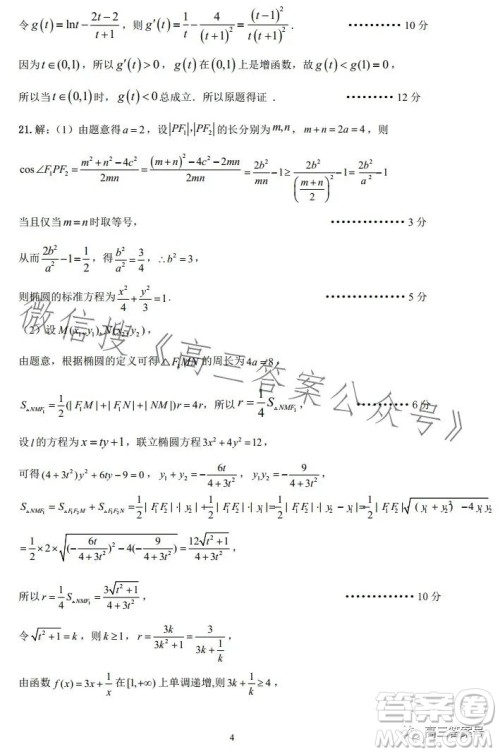 令 g(t)=lnt-\frac{2t-2}{t+1}，则 g′(t)=\frac{1}{t}-\frac{4}{(t+1)^2}=\frac{(t-1)^2}{t(t+1)^2}. ⋯⋯⋯10 分
因为 t∈(0,1)，所以 g′(t)>0，g(t) 在 (0,1) 上是增函数，故 g(t)<g(1)=0，
所以当 t∈(0,1) 时，g(t)<0 总成立．所以原题得证． ⋯⋯⋯12 分
21.解：（1）由题意得 a=2，设 |PF₁|,|PF₂| 的长分别为 m,n，m+n=2a=4，则
cos∠F₁PF₂=\frac{m²+n²-4c²}{2mn}=\frac{(m+n)²-4c²-2mn}{2mn}=\frac{2b²}{mn}-1≥\frac{2b²}{(\frac{m+n}{2})²}-1=\frac{2b²}{a²}-1
当且仅当 m=n 时取等号， ⋯⋯⋯3 分
从而 \frac{2b²}{a²}-1=\frac{1}{2}，得 \frac{b²}{a²}=\frac{3}{4}，∴b²=3，
则椭圆的标准方程为 \frac{x²}{4}+\frac{y²}{3}=1. ⋯⋯⋯5 分
（2）设 M(x₁,y₁),N(x₂,y₂)，
由题意，根据椭圆的定义可得△F₁MN 的周长为 4a=8，
S△NMF₁=\frac{1}{2}(|F₁M|+|F₁N|+|MN|)r=4r，所以 r=\frac{1}{4}S△NMF₁， ⋯⋯⋯6 分
设 l 的方程为 x=ty+1，联立椭圆方程 3x²+4y²=12，
可得 (4+3t²)y²+6ty-9=0，y₁+y₂=-\frac{6t}{4+3t²}，y₁y₂=-\frac{9}{4+3t²}，
S△NMF₁=S△F₁F₂M+S△F₁F₂N=\frac{1}{2}|F₁F₂|·|y₁|+\frac{1}{2}|F₁F₂|·|y₂|=\frac{1}{2}|F₁F₂|·|y₁-y₂|=\frac{1}{2}|F₁F₂|\sqrt{(y₁+y₂)²-4y₁y₂}
=\frac{1}{2}×2×\sqrt{(-\frac{6t}{4+3t²})²-4(-\frac{9}{4+3t²})}=\frac{12\sqrt{t²+1}}{4+3t²}，
所以 r=\frac{1}{4}S△NMF₁=\frac{3\sqrt{t²+1}}{4+3t²}， ⋯⋯⋯10 分
令 \sqrt{t²+1}=k，则 k≥1，r=\frac{3k}{3k²+1}=\frac{3}{3k+\frac{1}{k}}，
由函数 f(x)=3x+\frac{1}{x} 在 [1,+∞) 上单调递增,则 3k+\frac{1}{k}≥4，
4
微信搜《高三答案公众号》
高三答案号
答案圈